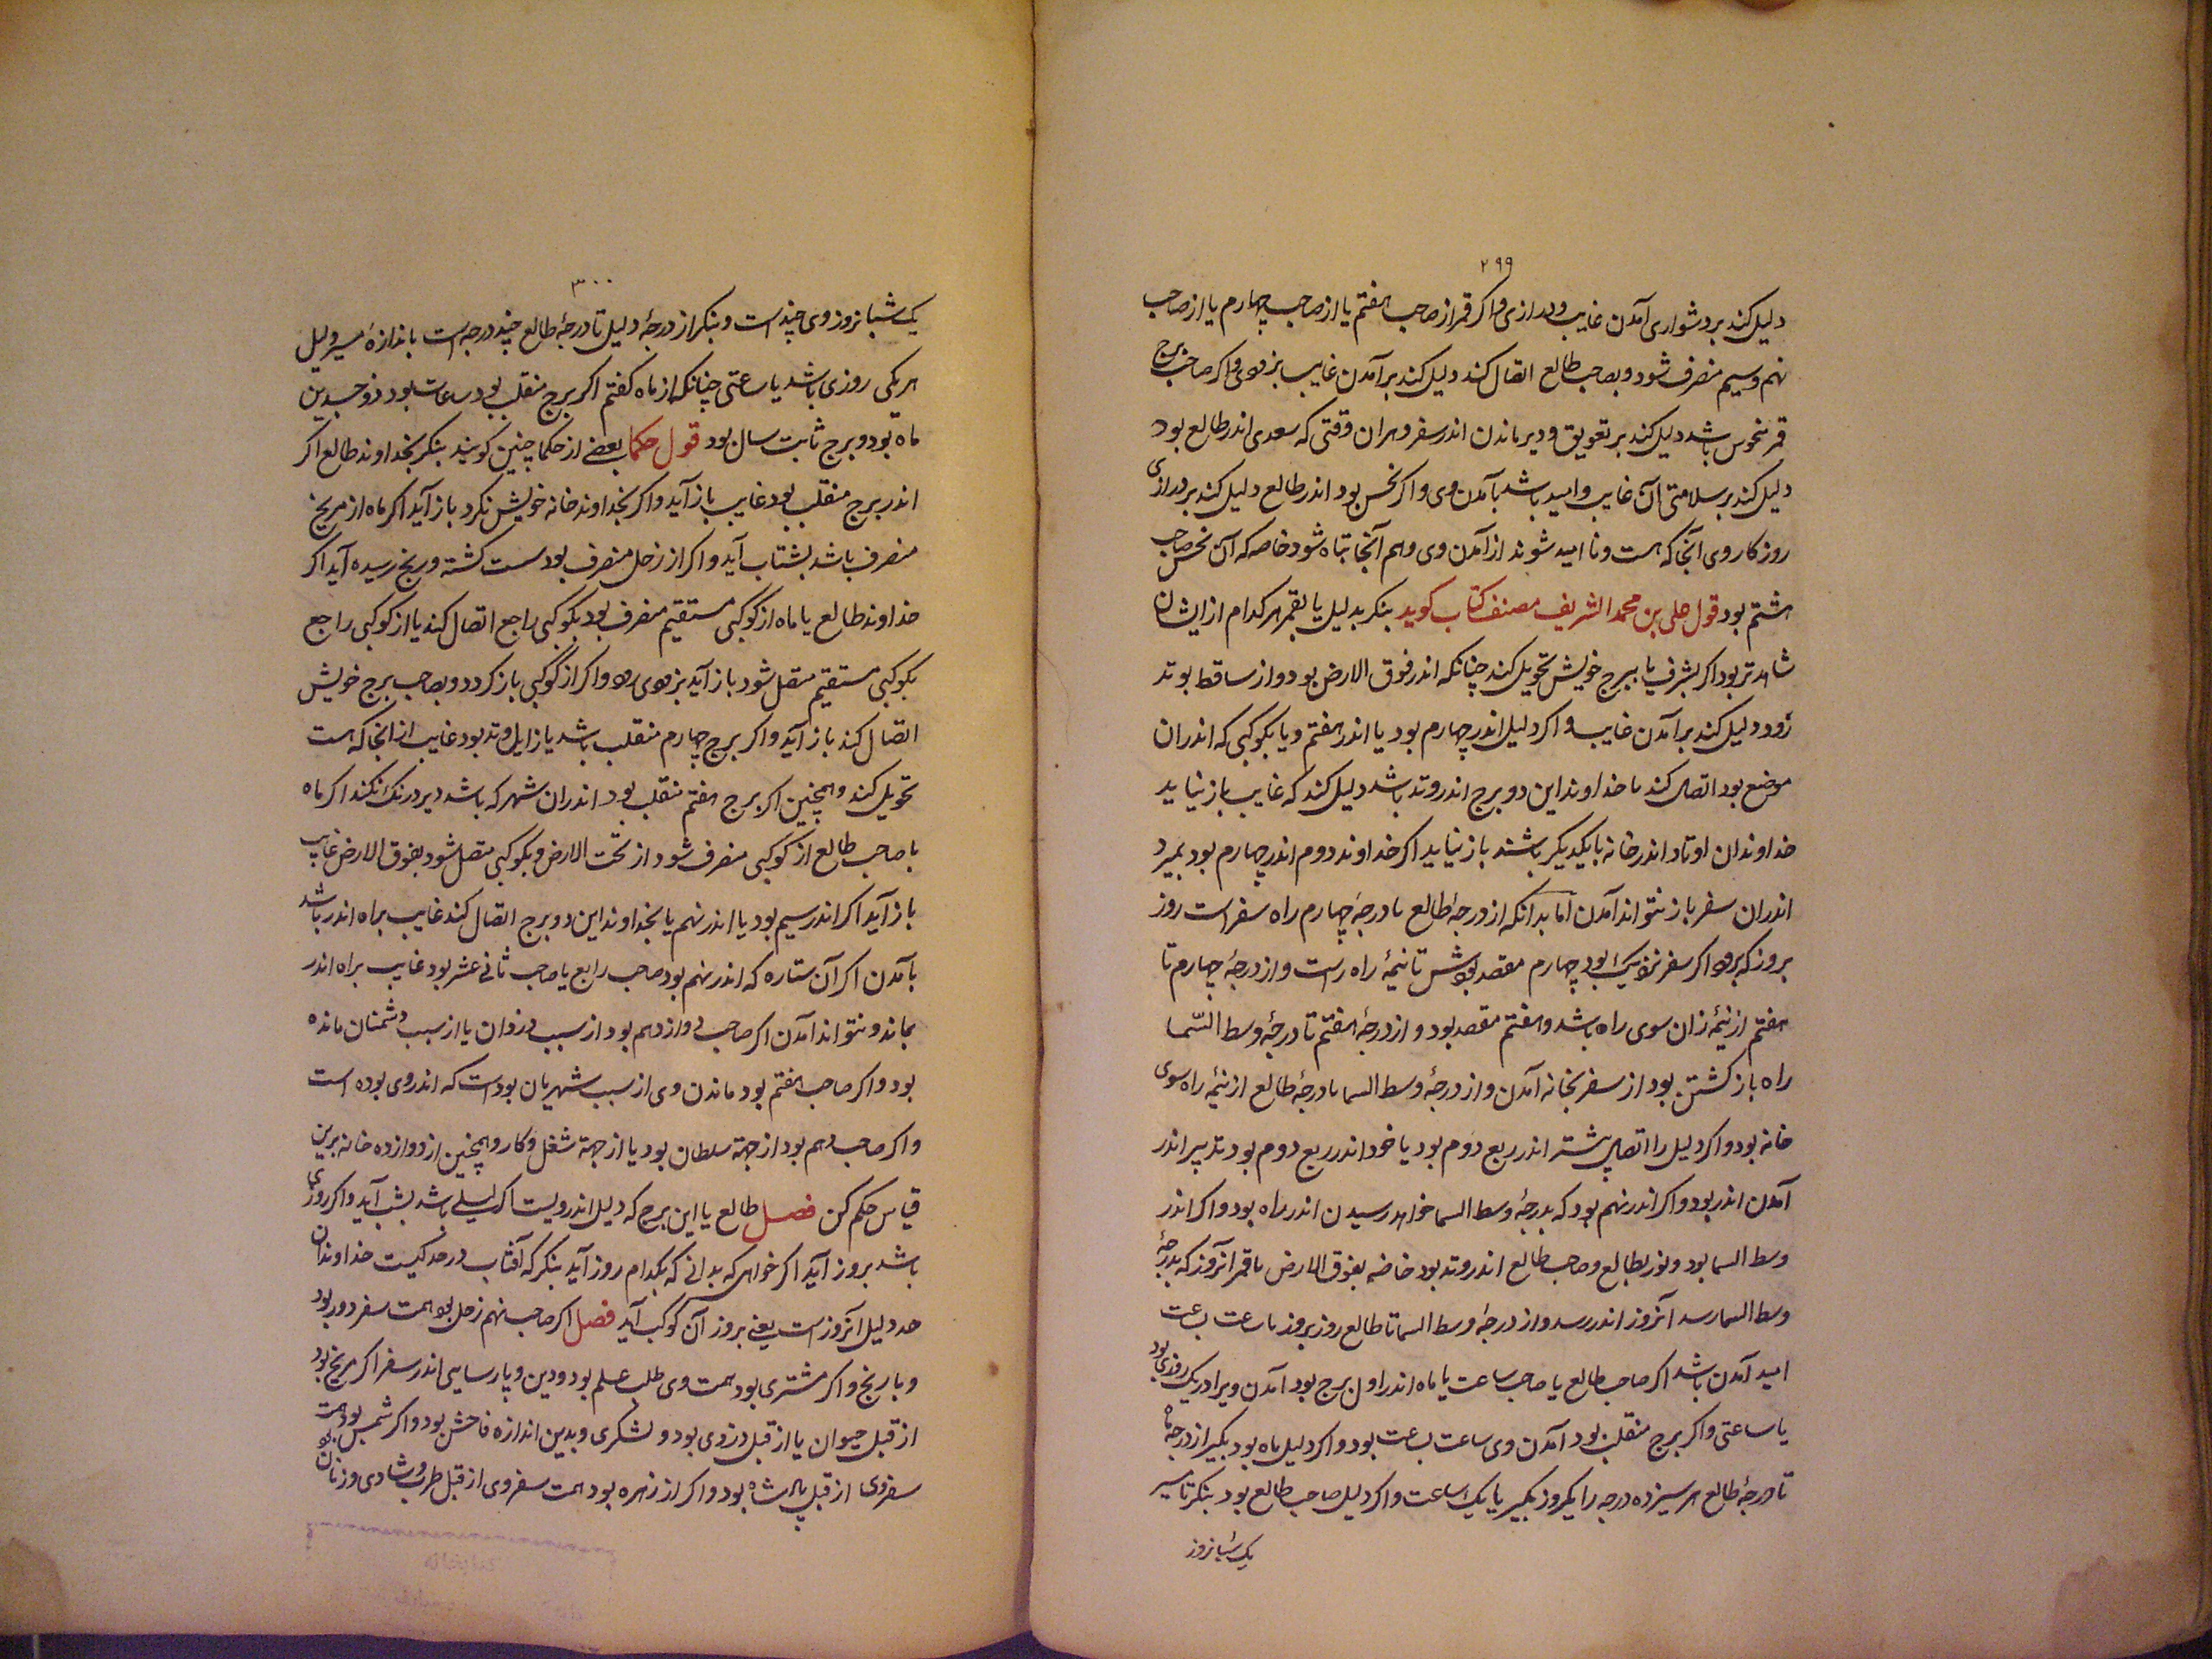 ۲۹۹
دلیل کند بر دشواری آمدن غایب و درازی و اکر قمر از صاحب هفتم یا از صاحب چهارم یا از صاحب
نهم و سیم منصرف شود و بصاحب طالع اتصال کند دلیل کند بر آمدن غایب بزودی و اکر صاحب برج
قمر منحوس باشد دلیل کند بر تعویق و دیر ماندن اندر سفر و هران وقتی که سعدی اندر طالع بود
دلیل کند بر سلامتی آن غایب و امید باشد بآمدن وی و اکر نحس بود اندر طالع دلیل کند بر درازی
روزکار وی آنجا که هست و نا امید شوند از آمدن وی و هم آنجا تباه شود خاصه که آن نحس صاحب
هشتم بود قول علی بن محمد الشریف مصنف کتاب کوید بنکر بدلیل یا بقمر هر کدام از ایشان
شاهدتر بود اکر بشرف یا ببرج خویش تحویل کند چنانکه اندر فوق الارض بود و از ساقط بوتد
زود دلیل کند بر آمدن غایب و اکر دلیل اندر چهارم بود یا اندر هفتم و یا بکوکبی که اندران
موضع بود اتصال کند یا خداوند این دو برج اندر وتد باشد دلیل کند که غایب باز نیاید
خداوندان اوتاد اندر خانه با یکدیکر باشند باز نیاید اکر خداوند دوم اندر چهارم بود بمیرد
اندران سفر باز نتواند آمدن اما بدانکه از درجهٔ طالع تا درجهٔ چهارم راه سفر است روز
بروز که برود اکر سفر نزدیک بود چهارم مقصد بودش تا نیمهٔ راه رست و از درجهٔ چهارم تا
هفتم از نیمهٔ زان سوی راه باشد و هفتم مقصد بود و از درجهٔ هفتم تا درجهٔ وسط السّما
راه باز کشتن بود از سفر بخانه آمدن و از درجهٔ وسط السما تا درجهٔ طالع از نیمهٔ راه سوی
خانه بود و اکر دلیل را اتصال بیشتر اندر ربع دوم بود یا خود اندر ربع دوم بود تدبیر اندر
آمدن اندر بود و اکر اندر نهم بود که بدرجهٔ وسط السما خواهد رسیدن اندر راه بود و اکر اندر
وسط السما بود و نور بطالع و صاحب طالع اندر وتد بود خاصه بفوق الارض با قمر آنروز که بدرجهٔ
وسط السما رسد آنروز اندر رسد و از درجهٔ وسط السما تا طالع روز بروز یا ساعت بساعت
امید آمدن باشد اکر صاحب طالع یا صاحب ساعت یا ماه اندر اول برج بود آمدن ویرا در یک روزی بود
یا ساعتی و اکر برج منقلب بود آمدن وی ساعت بساعت بود و اکر دلیل ماه بود بکیر از درجهٔ ماه
تا درجهٔ طالع هر سیزده درجه را یکروز بکیر یا یک ساعت و اکر دلیل صاحب طالع بود بنکر تا مسیر
یک شبانروز
۳۰۰
یک شبانروز وی چند است و بنکر از درجهٔ دلیل تا درجهٔ طالع چند درجه است باندازهٔ مسیر دلیل
هر یکی روزی باشد یا ساعتی چنانکه از ماه کفتم اکر برج منقلب بود ساعات بود ذو جسدین
ماه بود و برج ثابت سال بود قول حکما بعضے از حکما چنین کویند بنکر بخداوند طالع اکر
اندر برج منقلب بود غایب باز آید و اکر بخداوند خانه خویش نکرد باز آید اکر ماه از مریخ
منصرف باشد بشتاب آید و اکر از زحل منصرف بود سست کشته و رنج رسیده آید اکر
خداوند طالع یا ماه از کوکبی مستقیم منصرف بود بکوکبی راجع اتصال کند یا از کوکبی راجع
بکوکبی مستقیم متصل شود باز آید بزودی رود و اکر از کوکبی باز کردد و بصاحب برج خویش
اتصال کند باز آید و اکر برج چهارم منقلب باشد یا زایل وتد بود غایب از انجا که هست
تحویل کند و همچنین اکر برج هفتم منقلب بود اندران شهر که باشد دیر درنک نکند اکر ماه
یا صاحب طالع از کوکبی منصرف شود از تحت الارض و بکوکبی متصل شود بفوق الارض غایب
باز آید اکر اندر سیم بود یا اندر نهم یا بخداوند این دو برج اتصال کند غایب براه اندر باشد
بآمدن اکر آن ستاره که اندر نهم بود صاحب رابع یا صاحب ثانی عشر بود غایب براه اندر
بماند و نتواند آمدن اکر صاحب دوازدهم بود از سبب دزدان یا از سبب دشمنان مانده
بود و اکر صاحب هفتم بود ماندن وی از سبب شهریان بودست که اندر وی بوده است
و اکر صاحب دهم بود از جهة سلطان بود یا از جهة شغل و کار و همچنین از دوازده خانه برین
قیاس حکم کن فصل طالع یا این برج که دلیل اندرویست اکر لیلے باشد بشب آید و اکر روزی
باشد بروز آید اکر خواهی که بدانے که بکدام روز آید بنکر که آفتاب در حد کیست خداوندان
حد دلیل آنروز است یعنے بروز آن کوکب آید فصل اکر صاحب نهم زحل بود همت سفر دور بود
و با رنج و اکر مشتری بود همت وی طلب علم بود و دین و پارسایی اندر سفر اکر مریخ بود
از قبل حیوان یا از قبل دزدی بود و لشکری و بدین اندازه فاحش بود و اکر شمس بود همت
سفر وی از قبل پادشاه بود و اکر از زهره بود همت سفر وی از قبل طرب و شادی و زنان بود